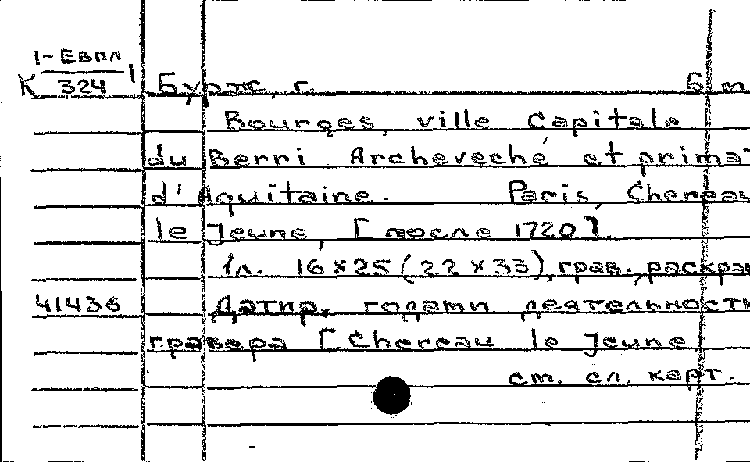 1-Евпл
К 324 1 Бурж, г. Б m
Bourges, ville Capitale
du Berri Archeveché et primat
d'Aquitaine. Paris, Chereau
le Jeune, [после 1720].
1л. 16×25 (22×33), грав., раскраш
41436 Датир. годами деятельности
гравера [Chereau le Jeune
см. сл. карт.